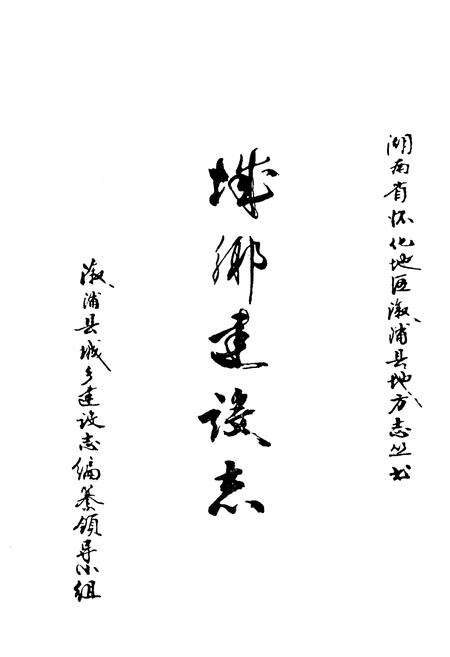 湖南省怀化地区溆浦县地方志丛书
城鄉建設志
溆浦县城乡建设志编纂领导小组